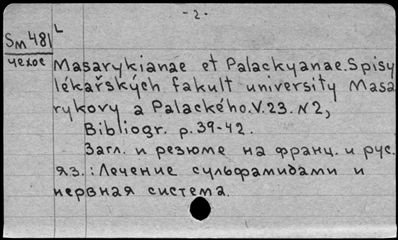 -2-
Sm 481 L
чехос
Masarykianae et Palackyanae. Spisy
lékařských fakult university Masa
rykovy a Palackého. V.23. N2,
Bibliogr. p. 39-42.
Загл. и резюме на франц. и рус.
яз.: Лечение сульфамидами и
нервная система.